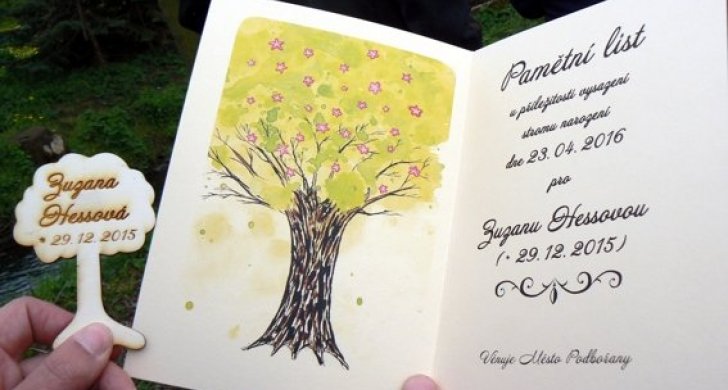 Zuzana
Hessová
* 29.12.2015
Pamětní list
u příležitosti vysazení
stromu narození
dne 23. 04. 2016
pro
Zuzanu Hessovou
(* 29.12.2015)
Věnuje Město Podbořany